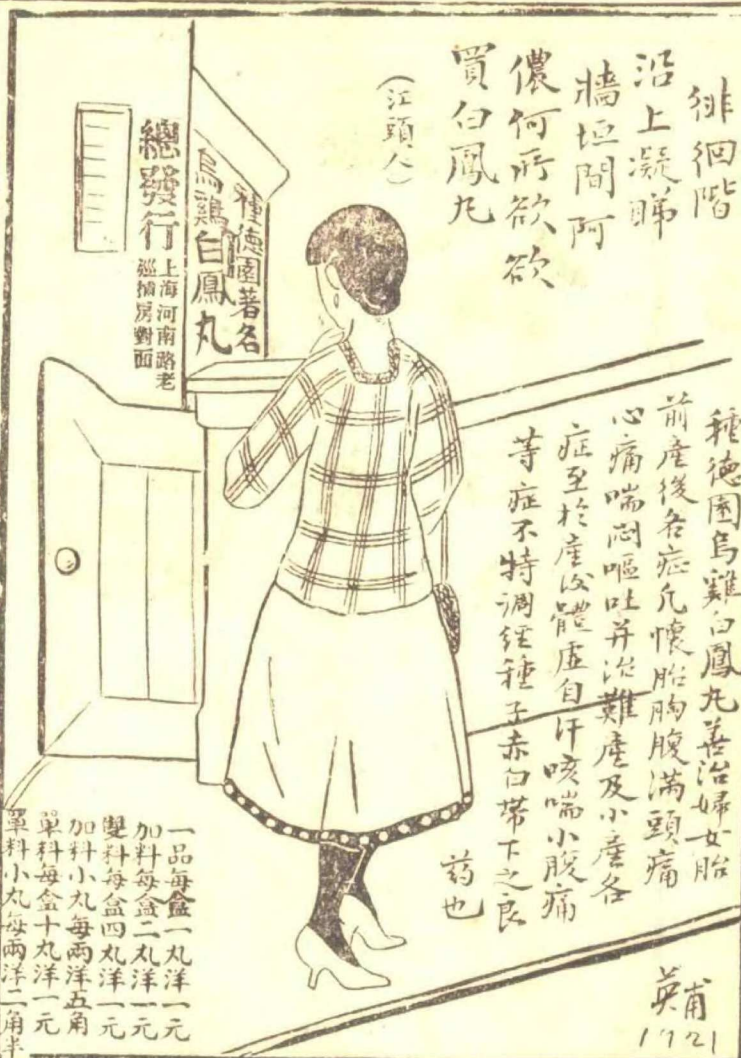 徘徊階
沿上凝睇
牆垣間阿
儂何所欲欲
買白鳳丸
(江頭人)
種德園著名
烏鷄白鳳丸
總發行
上海河南路老
巡捕房對面
種德園烏雞白鳳丸善治婦女胎
前產後各症凡懷胎胸腹滿頭痛
心痛喘悶嘔吐并治難產及小產各
症至於產後體虛自汗咳喘小腹痛
等症不特調經種子赤白帶下之良
葯也
一品每盒一丸洋一元
加料每盒二丸洋一元
雙料每盒四丸洋一元
加料小丸每兩洋五角
單料每盒十丸洋一元
單料小丸每兩洋二角半
英甫
1921